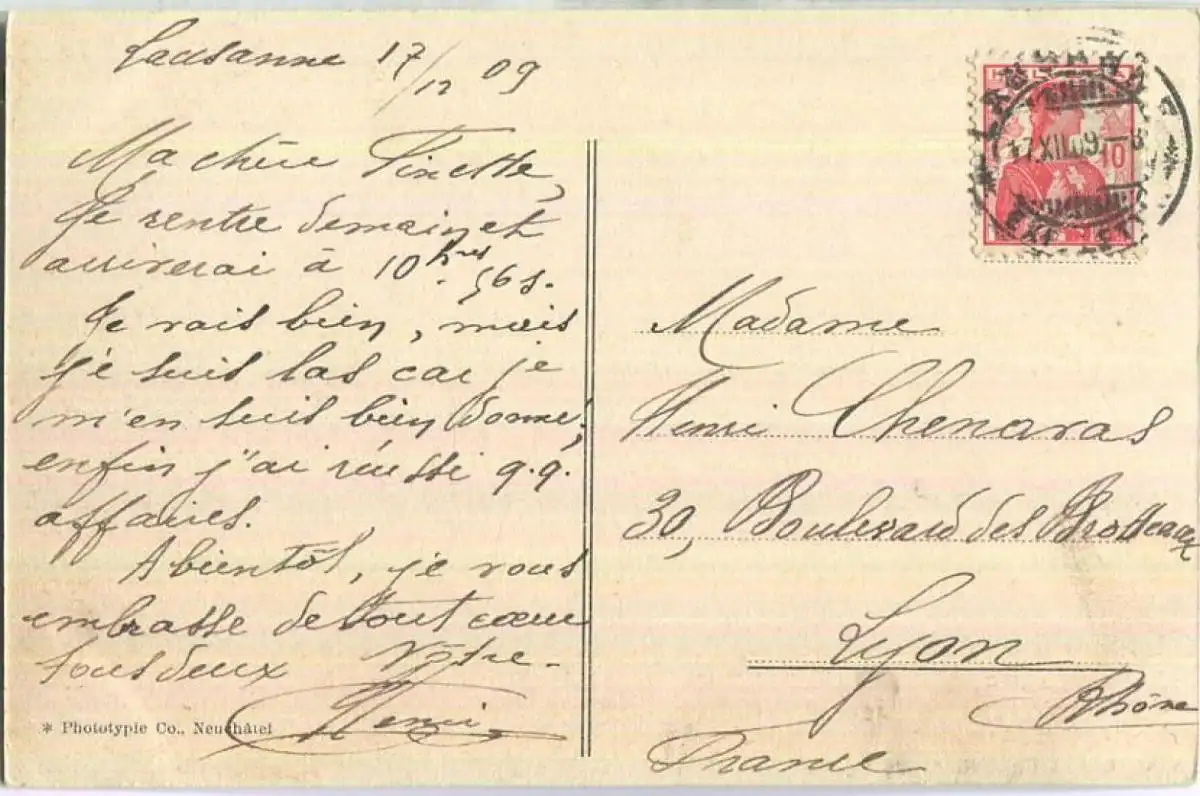 Lausanne 17/12 09
Ma chère Finette,
Je rentre demain et
arriverai à 10 hres 56 s.
Je vais bien, mais
je suis las car je
m'en suis bien donné,
enfin j'ai réussi q.q.
affaires.
A bientôt, je vous
embrasse de tout cœur
tous deux Vôtre
Henri
* Phototypie Co., Neuchâtel
10
17.XII.09.-8
Madame
Henri Chenavas
30, Boulevard des Brotteaux
Lyon
Rhône
France